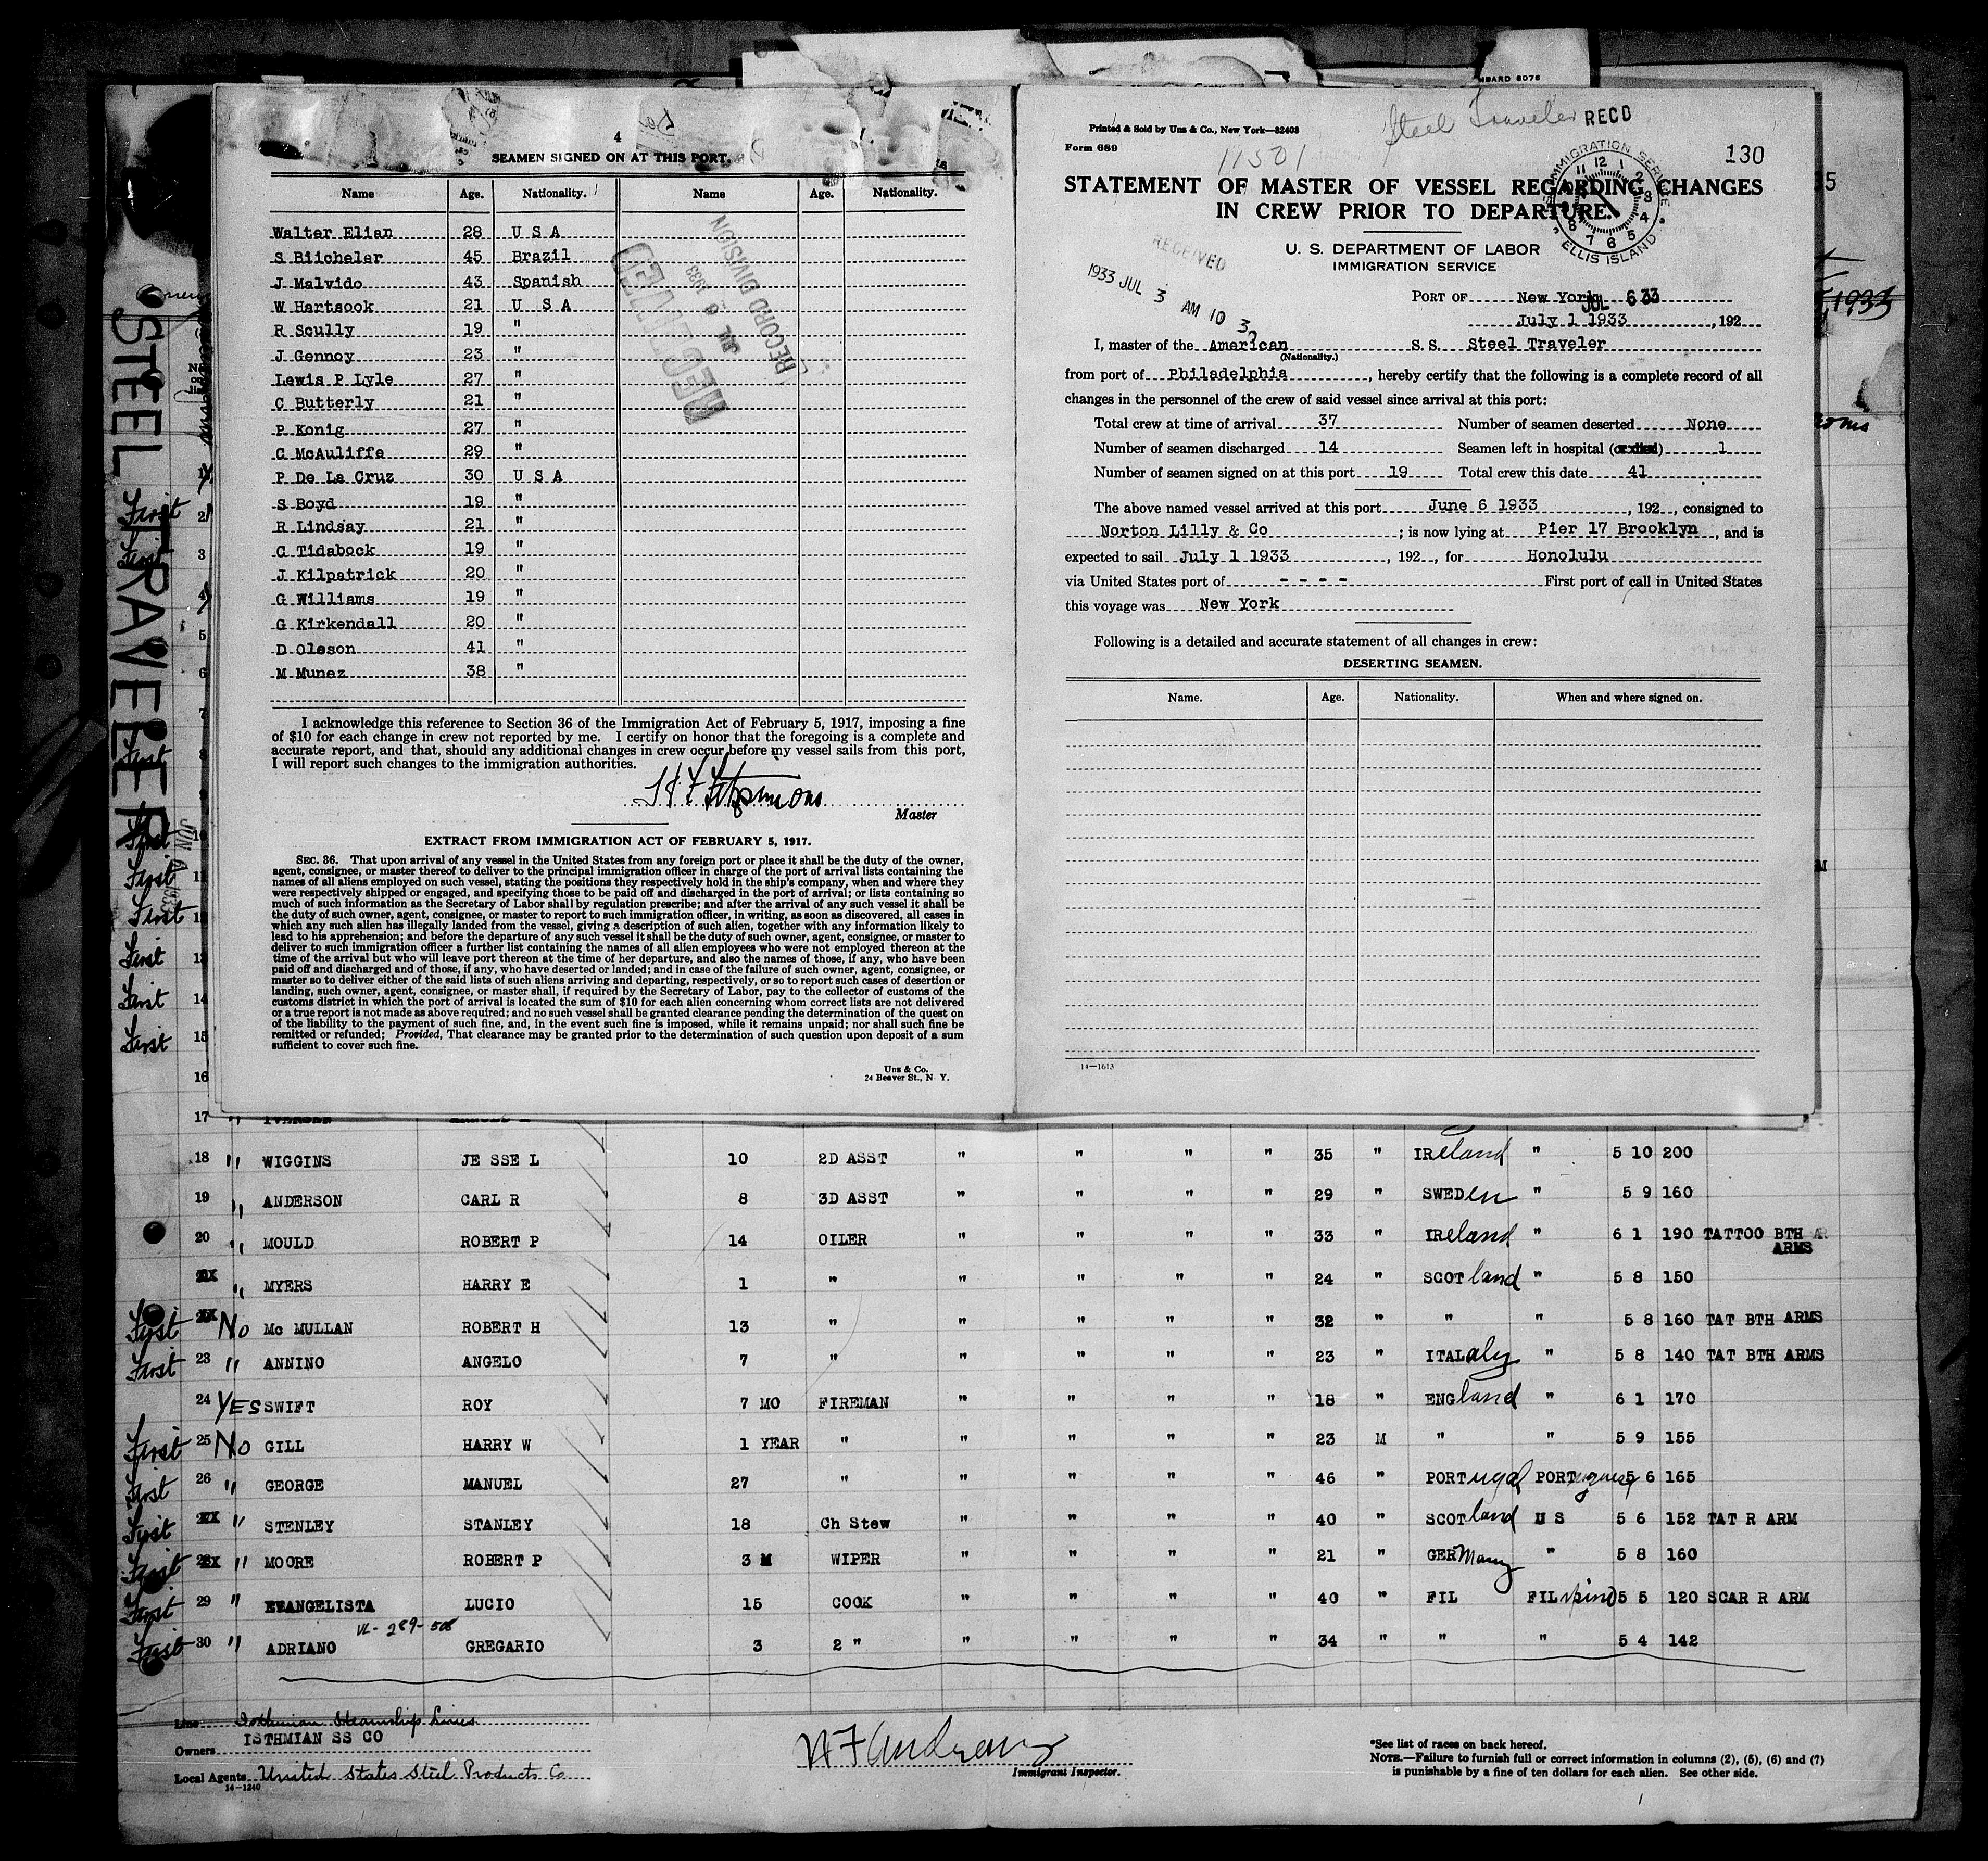 4
SEAMEN SIGNED ON AT THIS PORT.
Name Age. Nationality. Name Age. Nationality.
Walter Elian 28 U S A
S Biicheler 45 Brazil
J Malvido 43 Spanish
W Hartsook 21 U S A
R Scully 19 "
J Gennoy 23 "
Lewis P Lyle 27 "
C Butterly 21 "
P Konig 27 "
C McAuliffe 29 "
P De La Cruz 30 U S A
S Boyd 19 "
R Lindsay 21 "
C Tidabock 19 "
J Kilpatrick 20 "
G Williams 19 "
G Kirkendall 20 "
D Oleson 41 "
M Munez 38 "
RECEIVED
JUL 6 1933
RECORD DIVISION
I acknowledge this reference to Section 36 of the Immigration Act of February 5, 1917, imposing a fine
of $10 for each change in crew not reported by me. I certify on honor that the foregoing is a complete and
accurate report, and that, should any additional changes in crew occur before my vessel sails from this port,
I will report such changes to the immigration authorities.
Master
EXTRACT FROM IMMIGRATION ACT OF FEBRUARY 5, 1917.
SEC. 36. That upon arrival of any vessel in the United States from any foreign port or place it shall be the duty of the owner,
agent, consignee, or master thereof to deliver to the principal immigration officer in charge of the port of arrival lists containing the
names of all aliens employed on such vessel, stating the positions they respectively hold in the ship's company, when and where they
were respectively shipped or engaged, and specifying those to be paid off and discharged in the port of arrival; or lists containing so
much of such information as the Secretary of Labor shall by regulation prescribe; and after the arrival of any such vessel it shall be
the duty of such owner, agent, consignee, or master to report to such immigration officer, in writing, as soon as discovered, all cases in
which any such alien has illegally landed from the vessel, giving a description of such alien, together with any information likely to
lead to his apprehension; and before the departure of any such vessel it shall be the duty of such owner, agent, consignee, or master to
deliver to such immigration officer a further list containing the names of all alien employees who were not employed thereon at the
time of the arrival but who will leave port thereon at the time of her departure, and also the names of those, if any, who have been
paid off and discharged and of those, if any, who have deserted or landed; and in case of the failure of such owner, agent, consignee, or
master so to deliver either of the said lists of such aliens arriving and departing, respectively, or so to report such cases of desertion or
landing, such owner, agent, consignee, or master shall, if required by the Secretary of Labor, pay to the collector of customs of the
customs district in which the port of arrival is located the sum of $10 for each alien concerning whom correct lists are not delivered
or a true report is not made as above required; and no such vessel shall be granted clearance pending the determination of the quest on
of the liability to the payment of such fine, and, in the event such fine is imposed, while it remains unpaid; nor shall such fine be
remitted or refunded; Provided, That clearance may be granted prior to the determination of such question upon deposit of a sum
sufficient to cover such fine.
Uns & Co.
24 Beaver St., N. Y.
Printed & Sold by Uns & Co., New York—32403
Form 689
Steel Traveler RECD
11501
130
IMMIGRATION SERVICE
ELLIS ISLAND
STATEMENT OF MASTER OF VESSEL REGARDING CHANGES
IN CREW PRIOR TO DEPARTURE.
U. S. DEPARTMENT OF LABOR
IMMIGRATION SERVICE
RECEIVED
1933 JUL 3 AM 10 32
PORT OF New York JUL 6 33
July 1 1933, 192
I, master of the American S. S. Steel Traveler
(Nationality.)
from port of Philadelphia, hereby certify that the following is a complete record of all
changes in the personnel of the crew of said vessel since arrival at this port:
Total crew at time of arrival 37 Number of seamen deserted None
Number of seamen discharged 14 Seamen left in hospital (or died) 1
Number of seamen signed on at this port 19 Total crew this date 41
The above named vessel arrived at this port June 6 1933, 192, consigned to
Norton Lilly & Co; is now lying at Pier 17 Brooklyn, and is
expected to sail July 1 1933, 192, for Honolulu
via United States port of - - - - First port of call in United States
this voyage was New York
Following is a detailed and accurate statement of all changes in crew:
DESERTING SEAMEN.
Name. Age. Nationality. When and where signed on.
14—1613
STEEL TRAVELER
1933
18 " WIGGINS JESSE L 10 2D ASST " " " " 35 " IREland " 5 10 200
19 " ANDERSON CARL R 8 3D ASST " " " " 29 " SWEDen " 5 9 160
20 " MOULD ROBERT P 14 OILER " " " " 33 " IREland " 6 1 190 TATTOO BTH
ARMS
" MYERS HARRY E 1 " " " " " 24 " SCOTland " 5 8 150
First No Mc MULLAN ROBERT H 13 " " " " " 32 " " " 5 8 160 TAT BTH ARMS
First 23 " ANNINO ANGELO 7 " " " " " 23 " ITALaly " 5 8 140 TAT BTH ARMS
24 YES SWIFT ROY 7 MO FIREMAN " " " " 18 " ENGland " 6 1 170
First 25 No GILL HARRY W 1 YEAR " " " " " 23 M " " 5 9 155
First 26 " GEORGE MANUEL 27 " " " " " 46 " PORTugal PORTuguese 5 6 165
First " STENLEY STANLEY 18 Ch Stew " " " " 40 " SCOTland U S 5 6 152 TAT R ARM
First " MOORE ROBERT P 3 M WIPER " " " " 21 " GERMany " 5 8 160
First 29 " EVANGELISTA LUCIO 15 COOK " " " " 40 " FIL FILipino 5 5 120 SCAR R ARM
VL-289-508
First 30 " ADRIANO GREGARIO 3 2 " " " " " 34 " " " 5 4 142
Line Isthmian Steamship Lines
Owners ISTHMIAN SS CO
Local Agents United States Steel Products Co
14—1240
Immigrant Inspector.
*See list of races on back hereof.
NOTE.—Failure to furnish full or correct information in columns (2), (5), (6) and (7)
is punishable by a fine of ten dollars for each alien. See other side.